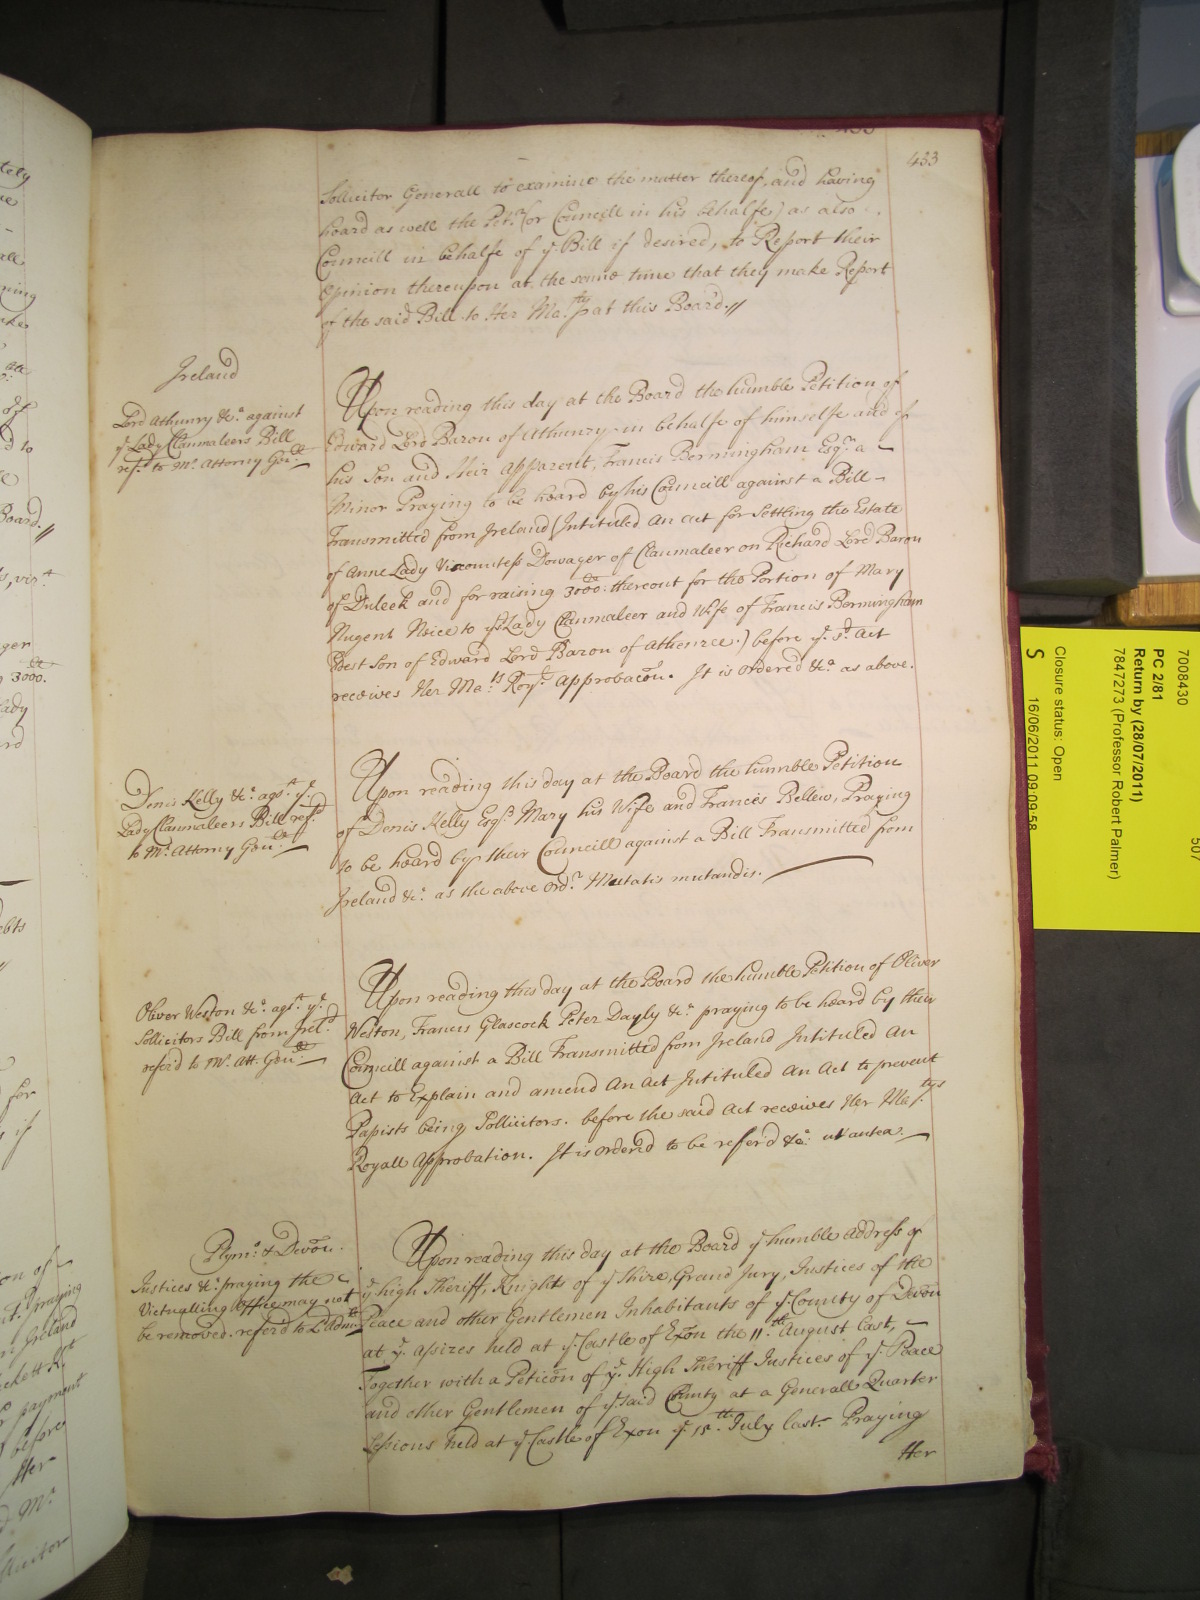 433
Sollicitor Generall to examine the matter thereof, and having
heard as well the Petr. (or Councell in his behalfe) as also
Councill in behalfe of ye. Bill if desired, to Report their
Opinion thereupon at the same time that they make Report
of the said Bill to Her Ma.ty at this Board.//
Ireland
Lord Athunry &c.a against
ye Lady Clanmaleers Bill
ref.d to Mr. Attorny Gen.ll
Upon reading this day at the Board the humble Petition of
Edward Lord Baron of Athunry in behalfe of himselfe and of
his Son and Heir Apparent, Francis Bermingham Esqr. a
Minor Praying to be heard by his Councill against a Bill
Transmitted from Ireland (Intituled An act for Settling the Estate
of Anne Lady Viscountess Dowager of Clanmaleer on Richard Lord Baron
of Duleek and for raising 3000.ll thereout for the Portion of Mary
Nugent Neice to ye Lady Clanmaleer and Wife of Francis Bermingham
Edest Son of Edward Lord Baron of Athenree.) before ye. sd. Act
receives Her Ma.ts Roy.ll Approbacon. It is Ordered &c.a as above.
Denis Kelly &c.a agst. ye.
Lady Clanmaleers Bill ref.d
to Mr. Attorny Gen.ll
Upon reading this day at the Board the humble Petition
of Denis Kelly Esqr. Mary his Wife and Frances Bellew, Praying
to be heard by their Councill against a Bill Transmitted from
Ireland &c.a as the above Ord.r Mutatis mutandis.
Oliver Weston &c.a agst. ye.
Sollicitors Bill from Irel.d
referd to Mr. Att. Gen.ll
Upon reading this day at the Board the humble Petition of Oliver
Weston, Francis Glascock Peter Dayly &c.a praying to be heard by their
Councill against a Bill Transmitted from Ireland Intituled An
Act to Explain and amend An Act Intituled An Act to prevent
Papists being Sollicitors. before the said Act receives Her Ma.tys
Royall Approbation. It is ordered to be referd &c.a ut antea.
Plym.o & Devon.
Justices &c.a praying the
Victualling Office may not
be removed. referd to L.d Adm.ll
Upon reading this day at the Board ye humble Address of
ye high Sheriff, Knights of ye Shire, Grand Jury, Justices of the
Peace and other Gentlemen Inhabitants of ye. County of Devon
at ye. Assizes held at ye. Castle of Exon the 11.th August last,
Together with a Peticon of ye. High Sheriff Justices of ye. Peace
and other Gentlemen of ye said County at a Generall Quarter
Sessions held at ye Castle of Exon ye. 15.th July last. Praying
Her
7008430
PC 2/81
Return by (28/07/2011)
7847273 (Professor Robert Palmer)
Closure status: Open
S 16/06/2011 09:09:58
507